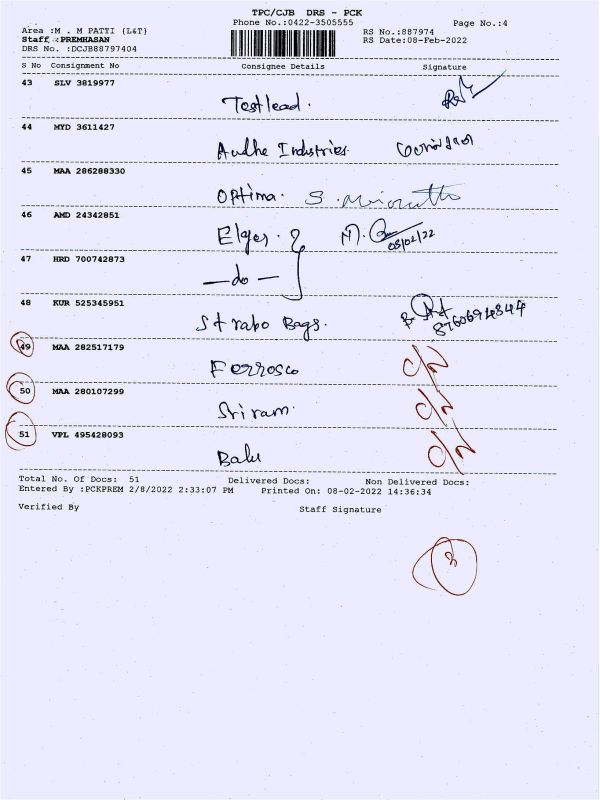 TPC/CJB DRS - PCK
Phone No.:0422-3505555
Page No.:4
Area :M . M PATTI {L&T}
RS No.:887974
Staff :PREMHASAN
RS Date:08-Feb-2022
DRS No. :DCJB88797404
S No Consignment No Consignee Details Signature
43 SLV 3819977
Testlead.
44 MYD 3611427
Industries.
45 MAA 286288330
Optima. S.
46 AMD 24342851
Elges. M. 08/02/22
47 HRD 700742873
— do —
48 KUR 525345951
Strabo Bags.
8760694844
49 MAA 282517179
Ferrosco C/N
50 MAA 280107299
Sriram. C/N
51 VPL 495428093
Balu C/N
Total No. Of Docs: 51 Delivered Docs: Non Delivered Docs:
Entered By :PCKPREM 2/8/2022 2:33:07 PM Printed On: 08-02-2022 14:36:34
Verified By Staff Signature
3